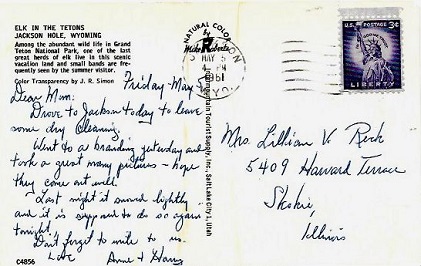 ELK IN THE TETONS
JACKSON HOLE, WYOMING
Among the abundant wild life in Grand
Teton National Park, one of the last
great herds of elk live in this scenic
vacation land and small bands are fre-
quently seen by the summer visitor.
Color Transparency by J. R. Simon
Friday May
Dear Mom:
Drove to Jackson today to leave
some dry cleaning.
Went to a branding yesterday and
took a great many pictures - hope
they come out well.
Last night it snowed lightly
and it is supposed to do so again
tonight.
Don't forget to write to us.
Love
Anne & Harry
C4856
NATURAL COLOR
by
Mike Roberts
Tourist Supply, Inc., Salt Lake City 1, Utah
MAY 5
PM
1961
WYO.
U.S. POSTAGE 3¢
LIBERTY
Mrs. Lillian K Rock
5409 Harvard Terrace
Skokie,
Illinois